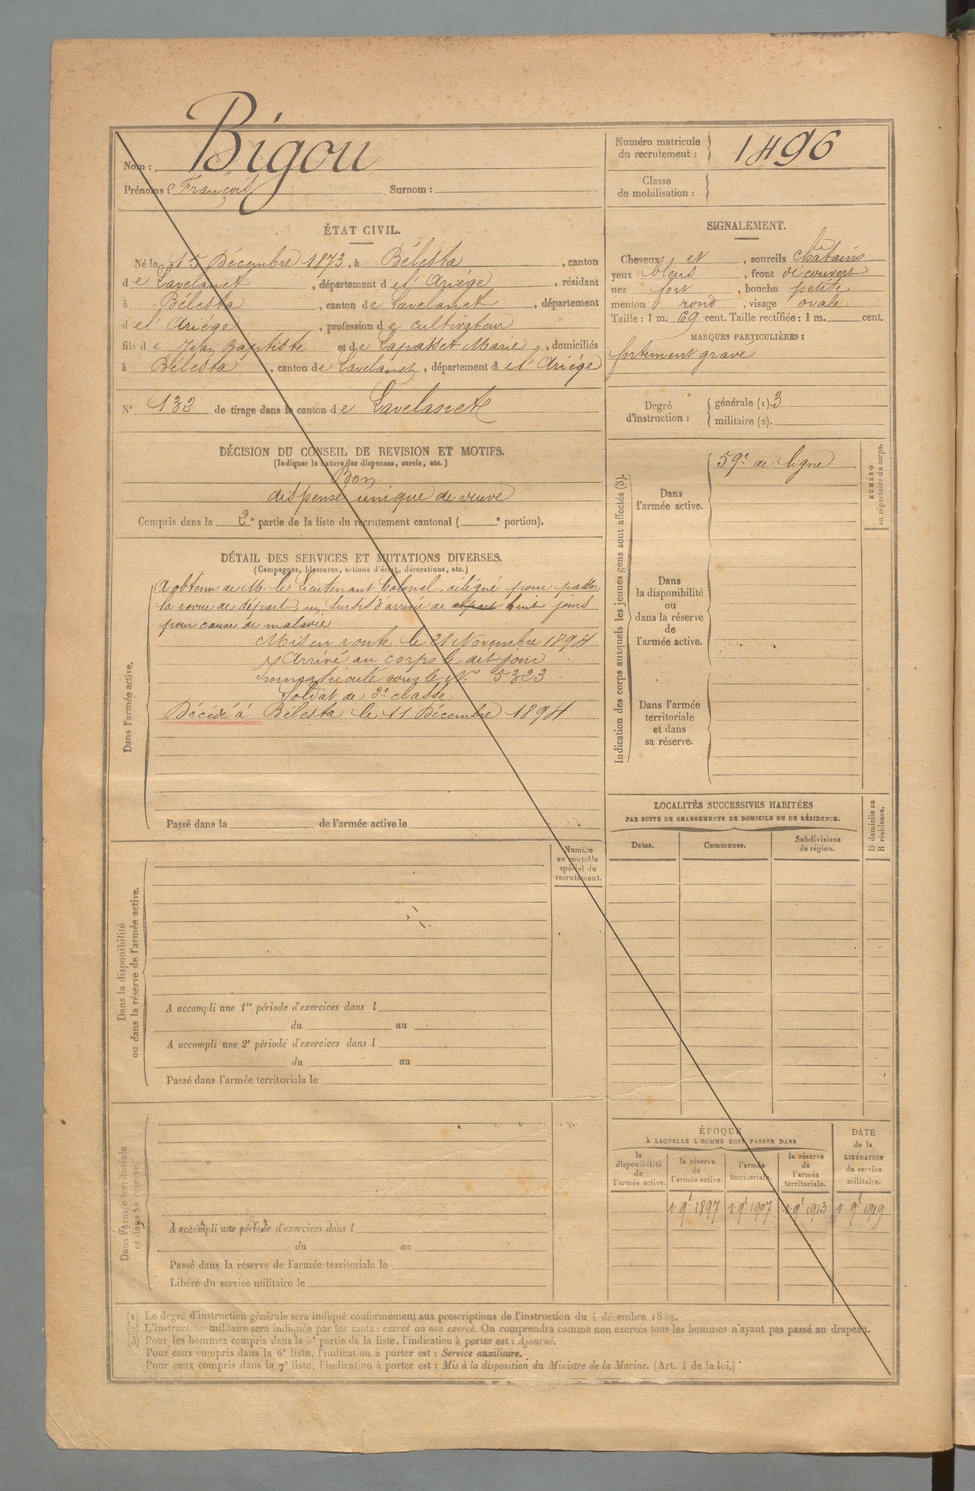 Nom : Bigou
Prénoms : François Surnom :
Numéro matricule du recrutement : 1496
Classe de mobilisation :
ÉTAT CIVIL.
Né le 15 Décembre 1873, à Bélesta, canton
de Lavelanet, département de l'Ariège, résidant
à Bélesta, canton de Lavelanet, département
de l'Ariège, profession de cultivateur
fils de Jean Baptiste et de Lapasset Marie, domiciliés
à Bélesta, canton de Lavelanet, département de l'Ariège
N° 132 de tirage dans le canton de Lavelanet
SIGNALEMENT.
Cheveux et, sourcils châtains
yeux bleus, front découvert
nez fort, bouche petite
menton rond, visage ovale
Taille : 1 m. 69 cent. Taille rectifiée : 1 m. cent.
MARQUES PARTICULIÈRES :
fortement gravé
Degré d'instruction : générale (1). 3
militaire (2).
DÉCISION DU CONSEIL DE REVISION ET MOTIFS.
(Indiquer la nature des dispenses, sursis, etc.)
Bon
dispensé unique de veuve
Compris dans la 2e partie de la liste du recrutement cantonal ( e portion).
DÉTAIL DES SERVICES ET MUTATIONS DIVERSES.
(Campagnes, blessures, actions d'éclat, décorations, etc.)
Dans l'armée active.
A obtenu de M. le Lieutenant Colonel, délégué pour passer
la revue de départ, un sursis d'arrivée de huit jours
pour cause de maladie
Mis en route le 21 Novembre 1894
Arrivé au corps le dit jour
immatriculé sous le N° 5323
Soldat de 2e classe
Décédé à Bélesta le 11 Décembre 1894
Passé dans la de l'armée active le
Indication des corps auxquels les jeunes gens sont affectés (3).
Dans l'armée active.
59e de ligne
NUMÉRO au répertoire du corps.
Dans la disponibilité ou dans la réserve de l'armée active.
Dans l'armée territoriale et dans sa réserve.
LOCALITÉS SUCCESSIVES HABITÉES
PAR SUITE DE CHANGEMENTS DE DOMICILE OU DE RÉSIDENCE.
Dates. Communes. Subdivisions de région. D domicile ou R résidence.
Dans la disponibilité ou dans la réserve de l'armée active.
Numéro au contrôle spécial du recrutement.
A accompli une 1re période d'exercices dans l
du au
A accompli une 2e période d'exercices dans l
du au
Passé dans l'armée territoriale le
Dans l'armée territoriale et dans sa réserve.
A accompli une période d'exercices dans l
du au
Passé dans la réserve de l'armée territoriale le
Libéré du service militaire le
ÉPOQUE
À LAQUELLE L'HOMME DOIT PASSER DANS
la disponibilité de l'armée active. la réserve de l'armée active. l'armée territoriale. la réserve de l'armée territoriale. DATE de la LIBÉRATION du service militaire.
1 9e 1897 1 9e 1907 1 9e 1913 1 9e 1919
(1) Le degré d'instruction générale sera indiqué conformément aux prescriptions de l'instruction du 4 décembre 1889.
(2) L'instruction militaire sera indiquée par les mots : exercé ou non exercé. On comprendra comme non exercés tous les hommes n'ayant pas passé au drapeau.
(3) Pour les hommes compris dans la 5e partie de la liste, l'indication à porter est : Ajourné.
Pour ceux compris dans la 6e liste, l'indication à porter est : Service auxiliaire.
Pour ceux compris dans la 7e liste, l'indication à porter est : Mis à la disposition du Ministre de la Marine. (Art. 4 de la loi.)